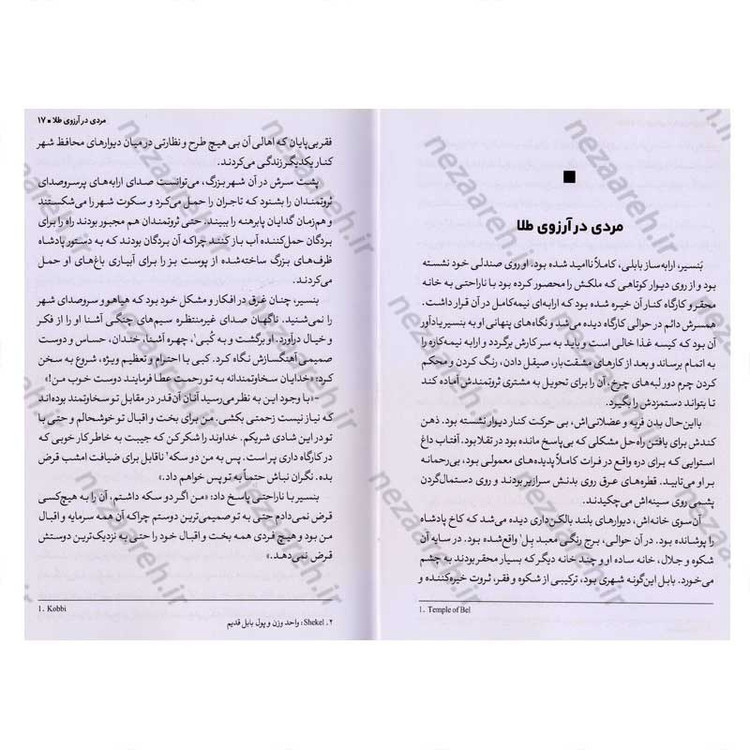 مردی در آرزوی طلا
بَنسیر، ارابه‌ساز بابلی، کاملاً ناامید شده بود. او روی صندلی خود نشسته
بود و از روی دیوار کوتاهی که ملکش را محصور کرده بود با ناراحتی به خانه
محقر و کارگاه کنار آن خیره شده بود که ارابه‌ای نیمه‌کامل در آن قرار داشت.
همسرش دائم در حوالی کارگاه دیده می‌شد و نگاه‌های پنهانی او به بنسیر یادآور
آن بود که کیسه غذا خالی است و باید به سر کارش برگردد و ارابه نیمه‌کاره را
به اتمام برساند و بعد از کارهای مشقت‌بار، صیقل دادن، رنگ کردن و محکم
کردن چرم دور لبه‌های چرخ، آن را برای تحویل به مشتری ثروتمندش آماده کند
تا بتواند دستمزدش را بگیرد.
بااین‌حال بدن فربه و عضلانی‌اش، بی حرکت کنار دیوار نشسته بود. ذهن
کندش برای یافتن راه‌حل مشکلی که بی‌پاسخ مانده بود در تقلا بود. آفتاب داغ
استوایی که برای دره واقع در فرات کاملاً پدیده‌های معمولی بود، بی‌رحمانه
بر او می‌تابید. قطره‌های عرق روی بدنش سرازیر بودند و روی دستمال‌گردن
پشمی روی سینه‌اش می‌چکیدند.
آن‌سوی خانه‌اش، دیوارهای بلند بالکن‌داری دیده می‌شد که کاخ پادشاه
را پوشانده بود. در آن حوالی، برج رنگی معبد بِل¹ واقع شده بود. در سایه آن
شکوه و جلال، خانه ساده او و چند خانه دیگر که بسیار محقر بودند به چشم
می‌خورد. بابل این‌گونه شهری بود، ترکیبی از شکوه و فقر، ثروت خیره‌کننده و
1. Temple of Bel
مردی در آرزوی طلا ■ ۱۷
فقر بی‌پایان که اهالی آن بی هیچ طرح و نظارتی در میان دیوارهای محافظ شهر
کنار یکدیگر زندگی می‌کردند.
پشت سرش در آن شهر بزرگ، می‌توانست صدای ارابه‌های پرسروصدای
ثروتمندان را بشنود که تاجران را حمل می‌کرد و سکوت شهر را می‌شکستند
و هم‌زمان گدایان پابرهنه را ببیند. حتی ثروتمندان هم مجبور بودند راه را برای
بردگان حمل‌کننده آب باز کنند چراکه آن بردگان بودند که به دستور پادشاه
ظرف‌های بزرگ ساخته‌شده از پوست بز را برای آبیاری باغ‌های او حمل
می‌کردند.
بنسیر، چنان غرق در افکار و مشکل خود بود که هیاهو و سروصدای شهر
را نمی‌شنید. ناگهان صدای غیرمنتظره سیم‌های چنگی آشنا او را از فکر
و خیال درآورد. او برگشت و به کُبی¹، چهره آشنا، خندان، حساس و دوست
صمیمی آهنگسازش نگاه کرد. کبی با احترام و تعظیم ویژه، شروع به سخن
کرد: «خدایان سخاوتمندانه به تو رحمت عطا فرمایند دوست خوب من!»
-«با وجود این به نظر می‌رسید آنان آن قدر در مقابل تو سخاوتمند بوده‌اند
که نیاز نیست زحمتی بکشی. من برای بخت و اقبال تو خوشحالم و حتی با
تو در این شادی شریکم. خداوند را شکر کن که جیبت به خاطر کار خوبی که
در کارگاه داری پر است. پس به من دو سکه² ناقابل برای ضیافت امشب قرض
بده. نگران نباش حتماً به تو پس خواهم داد.»
بنسیر با ناراحتی پاسخ داد: «من اگر دو سکه داشتم، آن را به هیچ‌کسی
قرض نمی‌دادم حتی به تو صمیمی‌ترین دوستم چراکه آن همه سرمایه و اقبال
من بود و هیچ فردی همه بخت و اقبال خود را حتی به نزدیک‌ترین دوستش
قرض نمی‌دهد.»
1. Kobbi
۲. Shekel: واحد وزن و پول بابل قدیم
nezaareh.ir